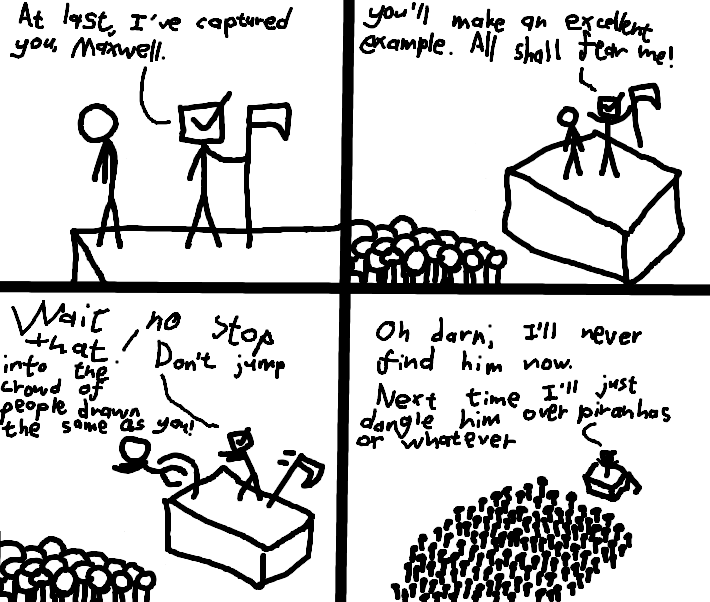 At last, I've captured
you, Maxwell.
you'll make an excellent
example. All shall fear me!
Wait no stop
that! Don't jump
into the
crowd of
people drawn
the same as you!
Oh darn; I'll never
find him now.
Next time I'll just
dangle him over piranhas
or whatever